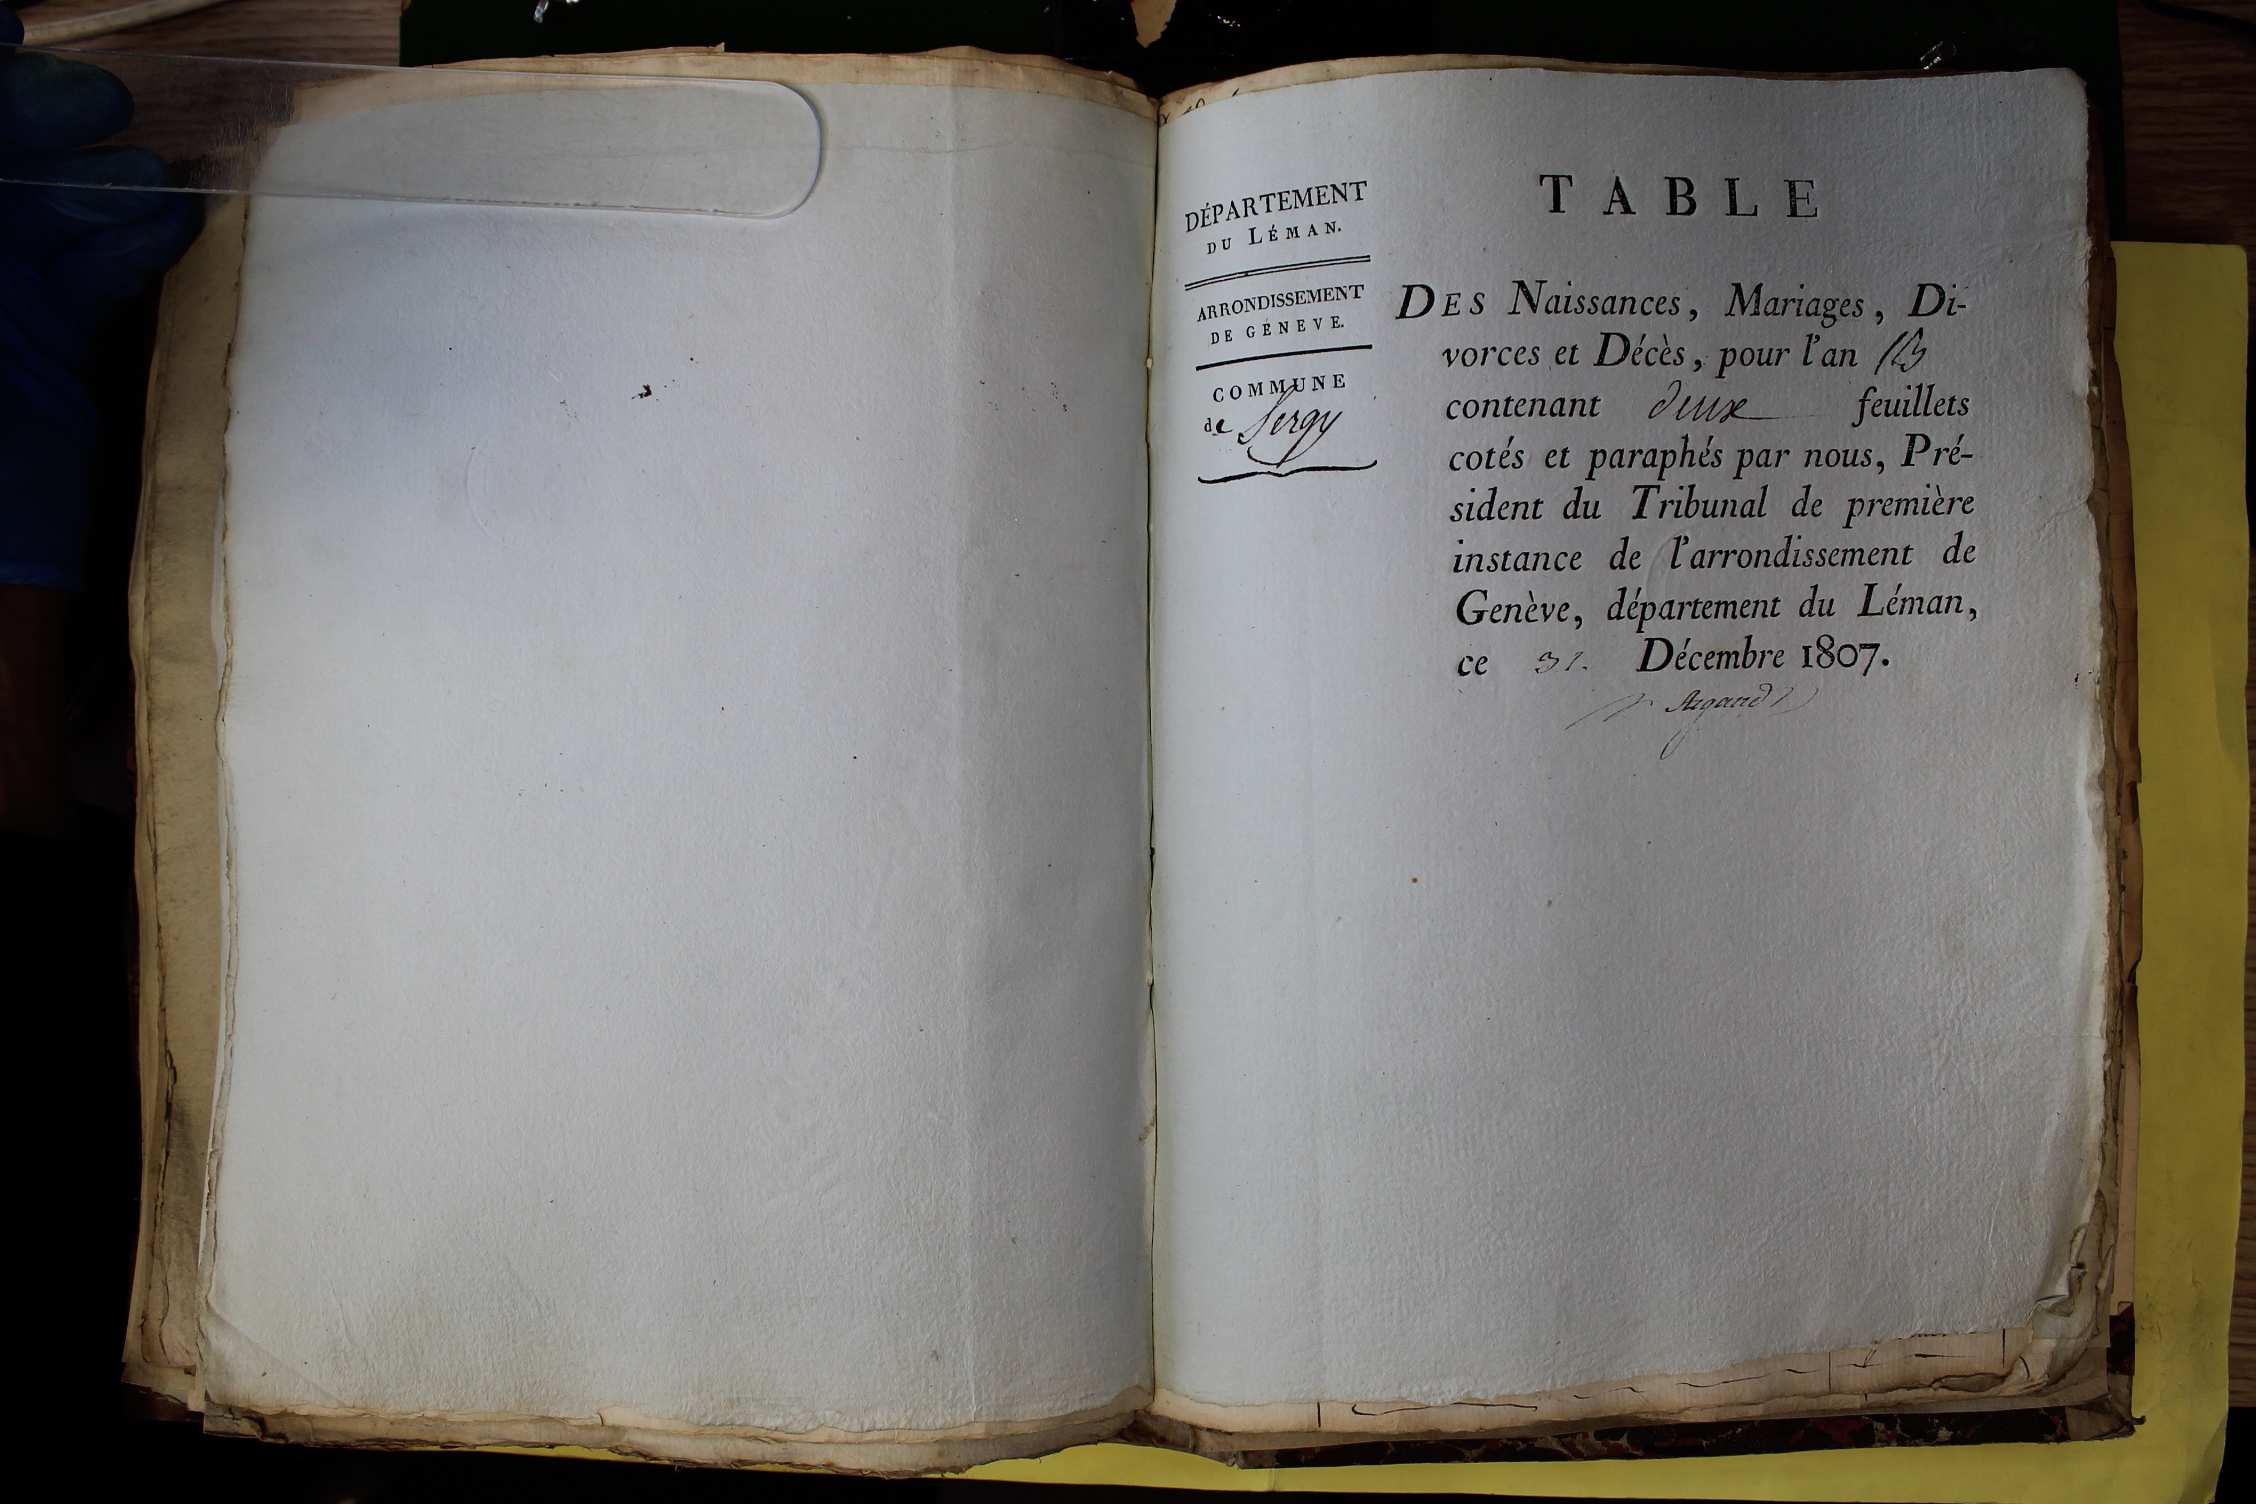 DÉPARTEMENT
DU LÉMAN.
ARRONDISSEMENT
DE GENEVE.
COMMUNE
de Sergy
TABLE
DES Naissances, Mariages, Di-
vorces et Décès, pour l'an
contenant deux feuillets
cotés et paraphés par nous, Pré-
sident du Tribunal de première
instance de l'arrondissement de
Genève, département du Léman,
ce 31. Décembre 1807.
Argand